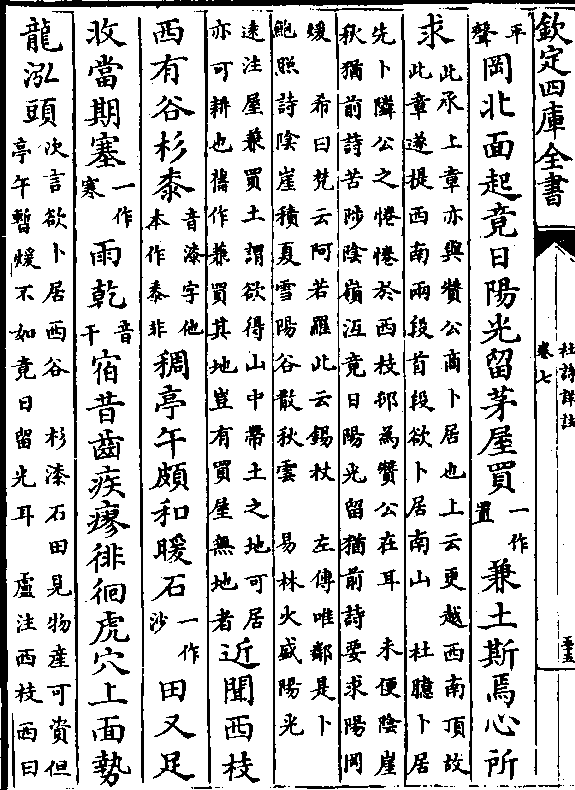 欽定四庫全書
杜詩詳註
卷七
平聲岡北面起竟日陽光留茅屋買一作置兼土斯焉心所
求此承上章亦與贊公商卜居也上云更越西南頂故此章遂提西南兩段首段欲卜居南山 杜臆卜居
先卜隣公之惓惓於西枝邨為贊公在耳 未便陰崖秋猶前詩苦陟陰嶺沍竟日陽光留猶前詩要求陽岡
煖 希曰梵云阿若羅此云錫杖 左傳唯鄰是卜鮑照詩陰崖積夏雪陽谷散秋雲 易林火盛陽光
遠注屋兼買土謂欲得山中帶土之地可居亦可耕也舊作兼買其地豈有買屋無地者近聞西枝
西有谷杉桼音漆字他本作黍非稠亭午頗和暖石一作沙田又足
收當期塞一作寒雨乾音干宿昔齒疾瘳徘徊虎穴上面勢
龍泓頭次言欲卜居西谷 杉漆石田見物產可資但亭午暫煖不如竟日留光耳 盧注西枝西曰